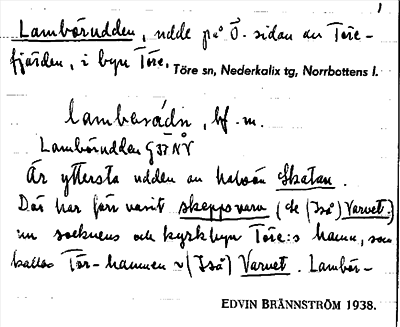 1
Lambörudden, udde på Ö. sidan av Töre-
fjärden, i byn Töre.
Töre sn, Nederkalix tg, Norrbottens l.
lamberádn, bf. m.
Lambörudden G 37 NV
Är yttersta udden av halvön Skatan.
Där har förr varit skeppsvarv (se Varvet.)
nu socknens och kyrkbyn Töre:s hamn, som
kallas Törehamnen ~ Varvet. Lambör-
EDVIN BRÄNNSTRÖM 1938.